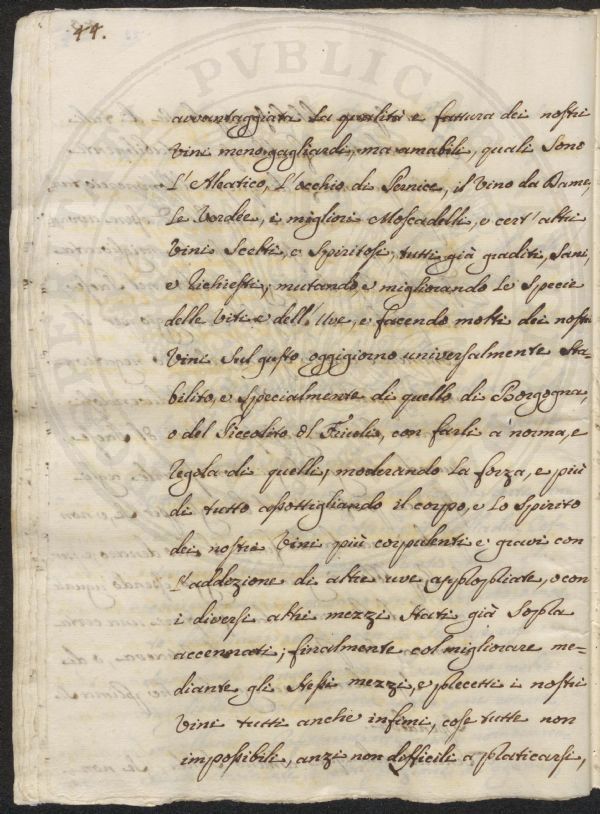 44.
PVBLICA
avvantaggiata la qualità e fattura dei nostri
Vini meno gagliardi, ma amabili, quali sono
L'Aleatico, L'occhio di Pernice, il Vino da Dame,
Le Verdee, i migliori Moscadelli, e cert'altri
Vini Scelti, e Spiritosi, tutti già graditi, sani,
e richiesti, mutando, e migliorando Le Specie
delle Viti e dell'Uve, e facendo molti dei nostri
Vini sul gusto oggigiorno universalmente sta-
bilito, e specialmente di quello di Borgogna,
o del Piccolito del Friuli, con farli a norma, e
regola di quelli, moderando La forza, e più
di tutto assottigliando il corpo, e Lo Spirito
dei nostri Vini più corpulenti e gravi con
L'addizione di altre uve appropriate, o con
i diversi altri mezzi stati già sopra
accennati; finalmente col migliorare me-
diante gli stessi mezzi, e precetti i nostri
Vini tutti anche infimi, cose tutte non
impossibili, anzi non difficili a praticarsi,